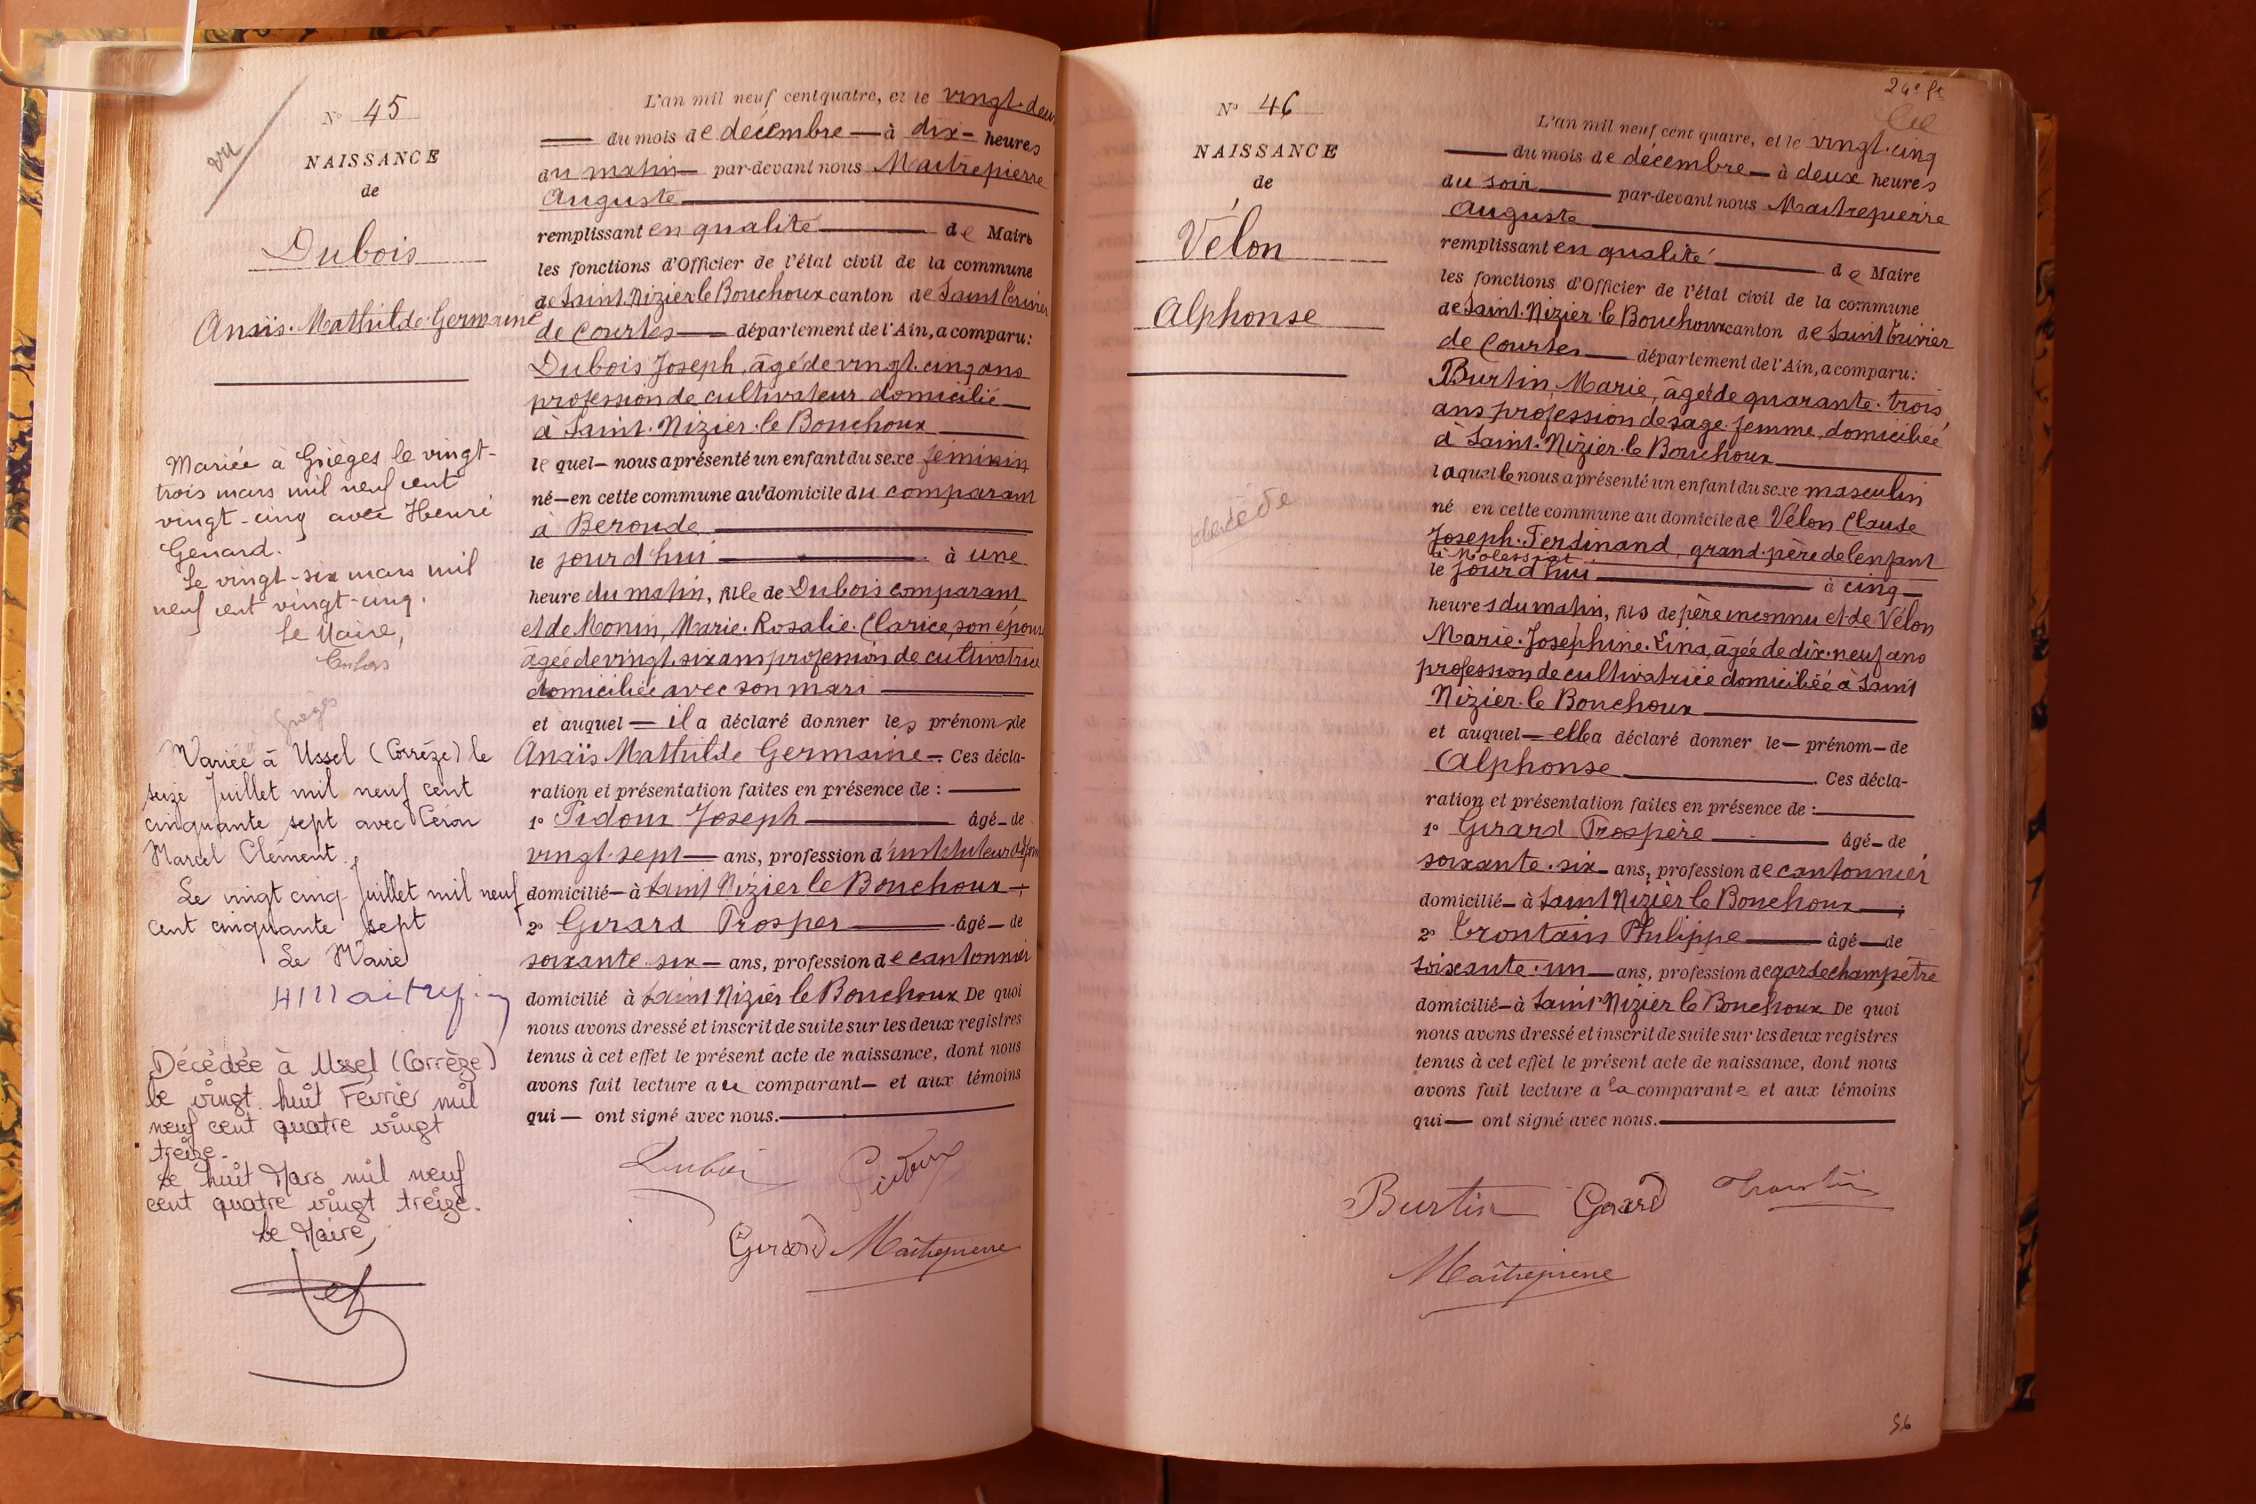 vu
N° 45
NAISSANCE
de
Dubois
Anaïs. Mathilde. Germaine
Mariée à Grièges le vingt-
trois mars mil neuf cent
vingt-cinq avec Henri
Genard.
Le vingt-six mars mil
neuf cent vingt-cinq.
Le Maire,
Grièges
Mariée à Ussel (Corrèze) le
seize Juillet mil neuf cent
cinquante sept avec Céron
Marcel Clément.
Le vingt cinq Juillet mil neuf
cent cinquante sept
Le Maire
Décédée à Ussel (Corrèze)
le vingt huit Février mil
neuf cent quatre vingt
treize.
Le huit Mars mil neuf
cent quatre vingt treize.
Le Maire,
L'an mil neuf cent quatre, et le vingt-deux
du mois de décembre à dix heures
du matin par-devant nous Maitrepierre
Auguste
remplissant en qualité de Maire
les fonctions d'Officier de l'état civil de la commune
de Saint. Nizier le Bouchoux canton de Saint Trivier
de Courtes département de l'Ain, a comparu:
Dubois Joseph, âgé de vingt. cinq ans
profession de cultivateur domicilié
à Saint. Nizier. le Bouchoux
le quel nous a présenté un enfant du sexe féminin
né en cette commune au domicile du comparant
à Beroude
le jourd'hui à une
heure du matin, fille de Dubois comparant
et de Monin, Marie. Rosalie. Clarice, son épouse
âgée de vingt. six ans profession de cultivatrice
domiciliée avec son mari
et auquel il a déclaré donner les prénoms de
Anaïs Mathilde Germaine. Ces décla-
ration et présentation faites en présence de :
1° Pidoux Joseph âgé de
vingt. sept ans, profession d'instituteur
domicilié à Saint Nizier le Bouchoux
2° Girard Prosper âgé de
soixante. six ans, profession de cantonnier
domicilié à Saint Nizier le Bouchoux De quoi
nous avons dressé et inscrit de suite sur les deux registres
tenus à cet effet le présent acte de naissance, dont nous
avons fait lecture au comparant et aux témoins
qui ont signé avec nous.
Dubois Pidoux
Girard Maîtrepierre
24e ft
N° 46
NAISSANCE
de
Vélon
Alphonse
décédé
L'an mil neuf cent quatre, et le vingt. cinq
du mois de décembre à deux heures
du soir par-devant nous Maitrepierre
Auguste
remplissant en qualité de Maire
les fonctions d'Officier de l'état civil de la commune
de Saint. Nizier. le Bouchoux canton de Saint Trivier
de Courtes département de l'Ain, a comparu:
Burtin, Marie, âgée de quarante. trois
ans profession de sage. femme, domiciliée
à Saint. Nizier. le Bouchoux
laquelle nous a présenté un enfant du sexe masculin
né en cette commune au domicile de Vélon Claude
Joseph. Ferdinand, grand. père de l'enfant
le jourd'hui à cinq
heures du matin, fils de père inconnu et de Vélon
Marie. Joséphine. Lina, âgée de dix. neuf ans
profession de cultivatrice domiciliée à Saint
Nizier. le Bouchoux
et auquel elle a déclaré donner le prénom de
Alphonse. Ces décla-
ration et présentation faites en présence de :
1° Girard Prospère âgé de
soixante. six ans, profession de cantonnier
domicilié à Saint Nizier le Bouchoux ;
2° Trontain Philippe âgé de
soixante. un ans, profession de garde champêtre
domicilié à Saint Nizier le Bouchoux De quoi
nous avons dressé et inscrit de suite sur les deux registres
tenus à cet effet le présent acte de naissance, dont nous
avons fait lecture à la comparante et aux témoins
qui ont signé avec nous.
Burtin Girard Trontain
Maîtrepierre
56